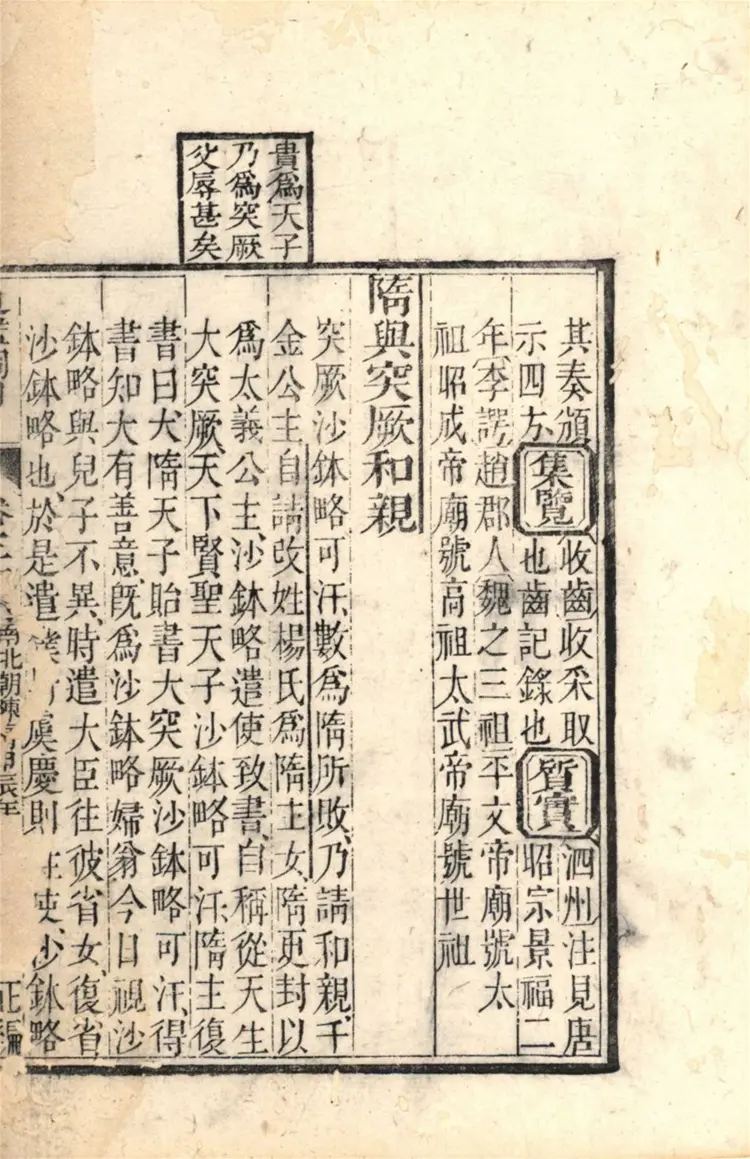 貴爲天子
乃爲突厥
父辱甚矣
其奏頒
示四方
集覽
收齒收采取
也齒記錄也
質實
泗州注見唐
昭宗景福二
年李諤趙郡人魏之三祖平文帝廟號太
祖昭成帝廟號高祖太武帝廟號世祖
隋與突厥和親
突厥沙鉢略可汗、數爲隋所敗、乃請和親、千
金公主、自請改姓楊氏、爲隋主女、隋更封以
爲太義公主、沙鉢略遣使致書、自稱從天生
大突厥、天下賢聖天子沙鉢略可汗、隋主復
書曰、大隋天子貽書大突厥沙鉢略可汗、得
書知大有善意、旣爲沙鉢略婦翁、今日視沙
鉢略與兒子不異、時遣大臣往彼省女、復省
沙鉢略也、於是遣虞慶則使、沙鉢略
南北朝陳
正編